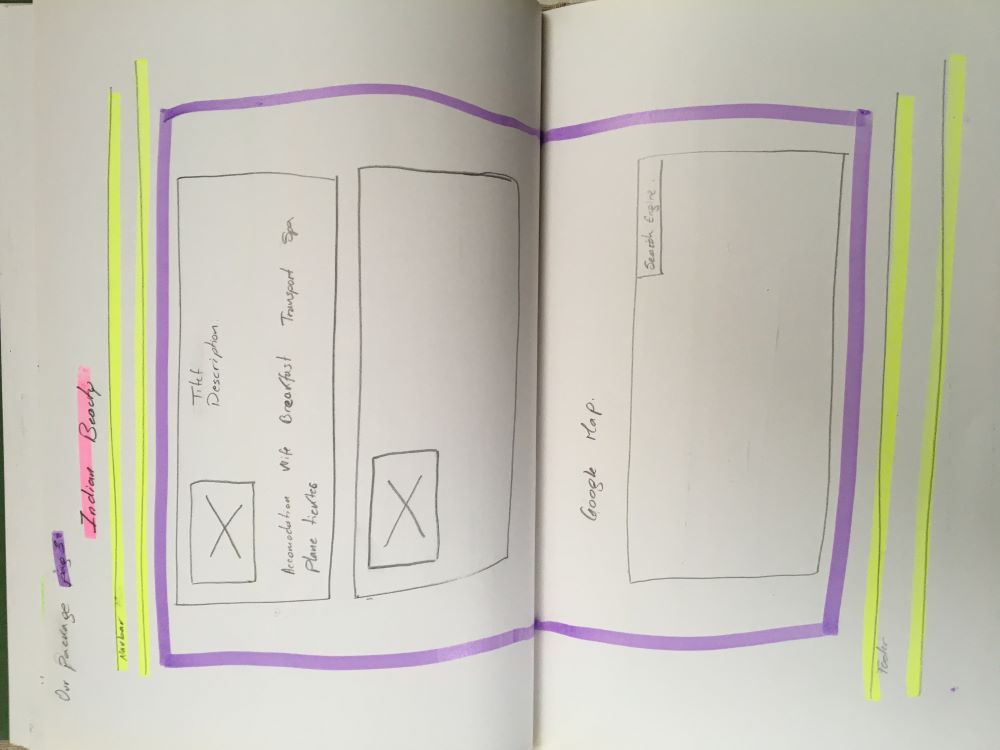 Our package page 3
Indian Beauty
Navbar
Titel
Description
Accomodation Wife Breakfast Transport Spa
Plane ticktes
Google Map.
Search Engine.
Footer